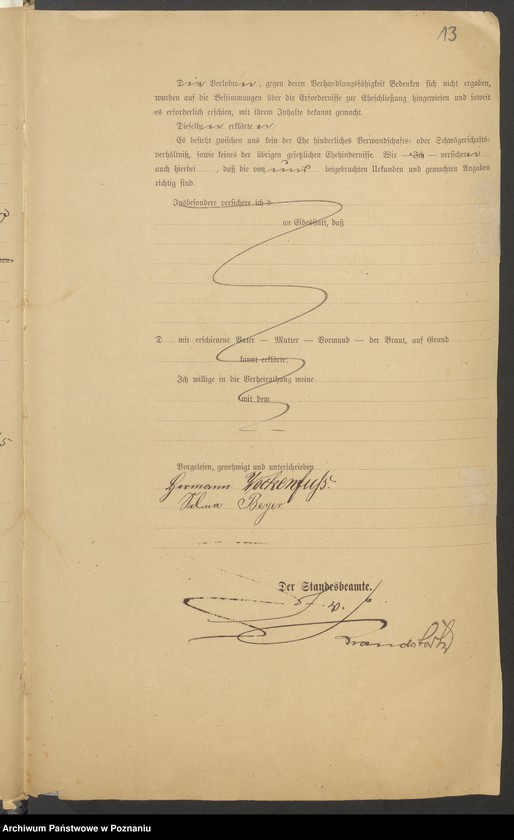 13
Die Verlobten, gegen deren Verhandlungsfähigkeit Bedenken sich nicht ergaben,
wurden auf die Bestimmungen über die Erfordernisse zur Eheschließung hingewiesen und soweit
es erforderlich erschien, mit ihrem Inhalte bekannt gemacht.
Dieselben erklärten
Es besteht zwischen uns kein der Ehe hinderliches Verwandschafts- oder Schwägerschafts-
verhältniß, sowie keines der übrigen gesetzlichen Ehehindernisse. Wir — Ich — versichern
auch hierbei, daß die von uns beigebrachten Urkunden und gemachten Angaben
richtig sind.
Insbesondere versichere ich d
an Eidesstatt, daß
D mir erschienene Vater — Mutter — Vormund — der Braut, auf Grund
kannt erklärte:
Ich willige in die Verheirathung meine
mit dem
Vorgelesen, genehmigt und unterschrieben
Hermann Wockenfuß.
Selma Beyer
Der Standesbeamte.
J. V.
Archiwum Państwowe w Poznaniu